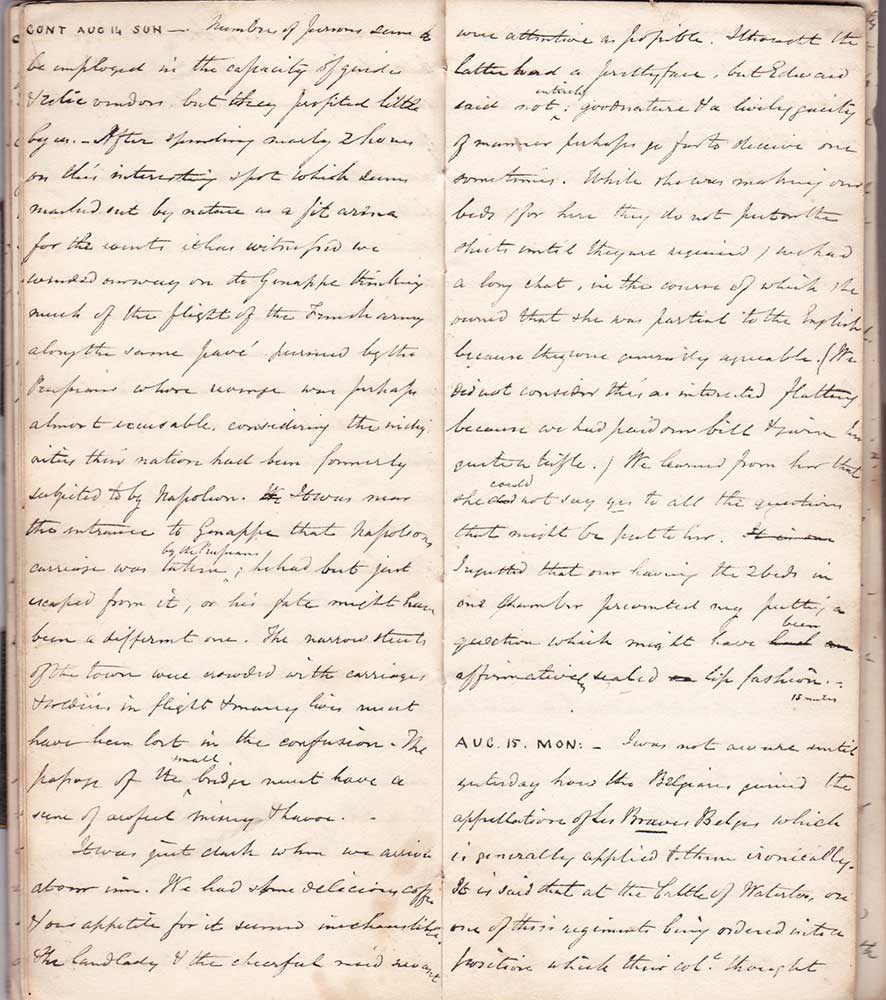 CONT AUG 14 SUN —. Numbers of persons seem to
be employed in the capacity of guides
& relic vendors but they profited little
by us. — After spending nearly 2 hours
on this interesting spot which seems
marked out by nature as a fit arena
for the events it has witnessed we
wended our way on to Genappe thinking
much of the flight of the French army
along the same pavé pursued by the
Prussians whose revenge was perhaps
almost excusable, considering the indig
nities their nation had been formerly
subjected to by Napoleon. We It was near
the entrance to Genappe that Napoleons
by the Prussians
carriage was taken; he had but just
escaped from it, or his fate might have
been a different one. The narrow streets
of the town were crowded with carriages
& soldiers in flight & many lives must
have been lost in the confusion. The
small
passage of the bridge must have a
scene of awful misery & havoc. -
It was quite dark when we arrived
at our inn. We had some delicious coffee
& our appetite for it seemed inexhaustible.
The landlady & the cheerful maid servant
were attentive as possible. I thought the
latter had a pretty face, but Edward
entirely
said not; good nature & a lively gaiety
of manner perhaps go far to deceive one
sometimes. While she was making our
beds (for here they do not put on the
sheets until they are required) we had
a long chat, in the course of which she
owned that she was partial to the English
because they were generally agreeable. (We
did not consider this as interested flattery
because we had paid our bill & given her
quite a trifle.) We learned from her that
could
she did not say yes to all the questions
that might be put to her. It is
I regretted that our having the 2 beds in
one Chamber prevented my putting a
been
question which might have had an
affirmatively sealed lip fashion. -
15 miles
AUG. 15. MON: - I was not aware until
yesterday how the Belgians gained the
appellation of Les Braves Belges which
is generally applied to them ironically.
It is said that at the battle of Waterloo, on
one of their regiments being ordered into a
position which their col. thought